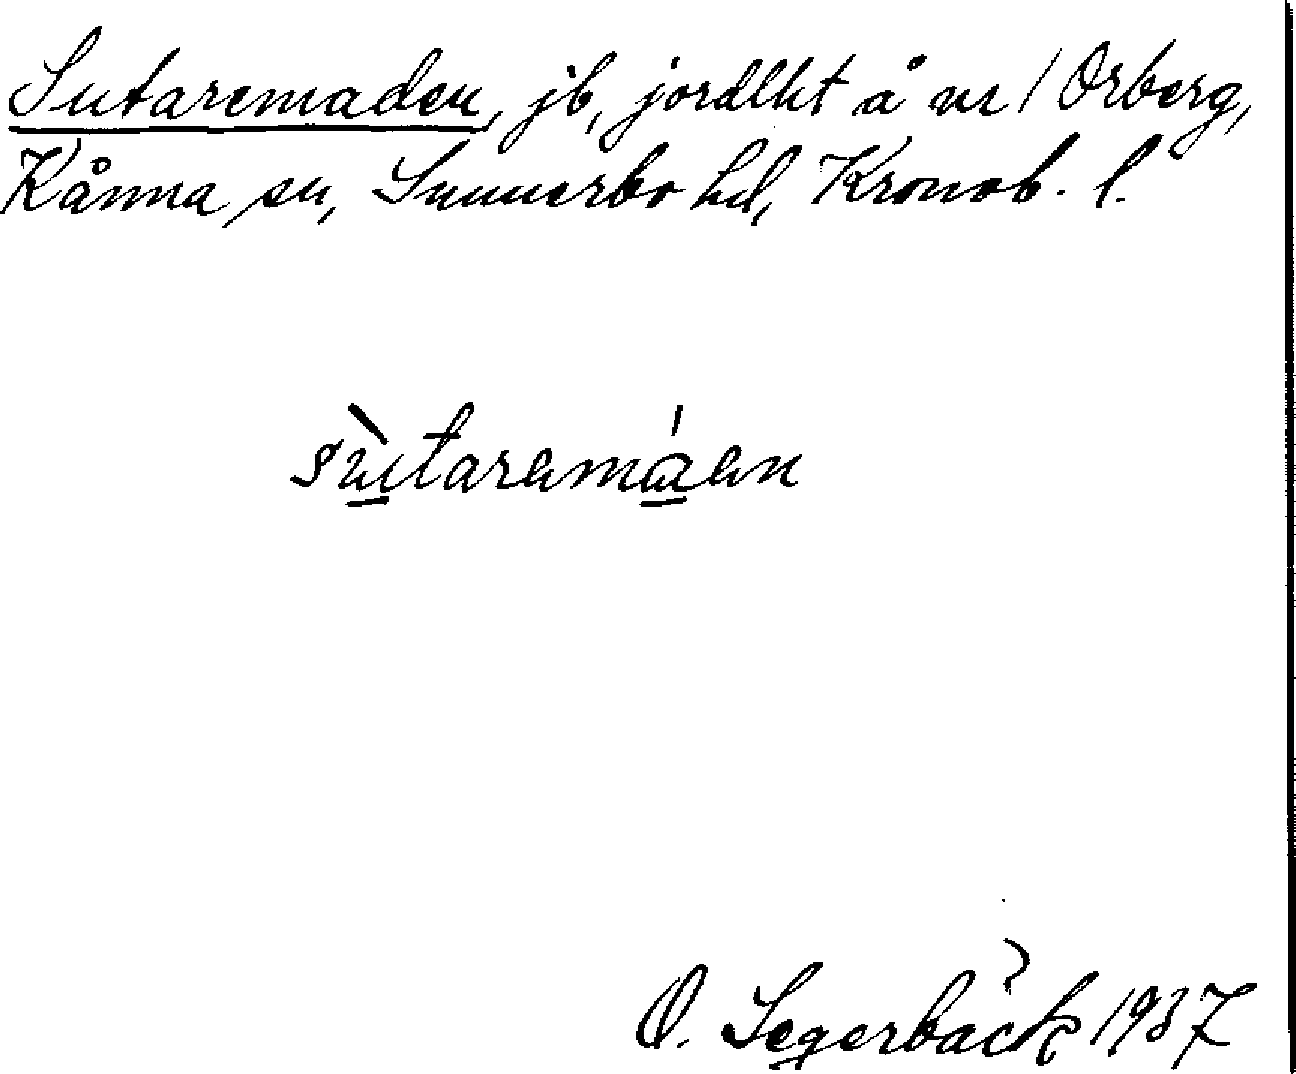 Sutaremaden, jb, jordlht å nr 1 Orberg,
Kånna sn, Sunnerbo hd, Kronob. l.
sùtaremáen
O. Segerbäck 1937